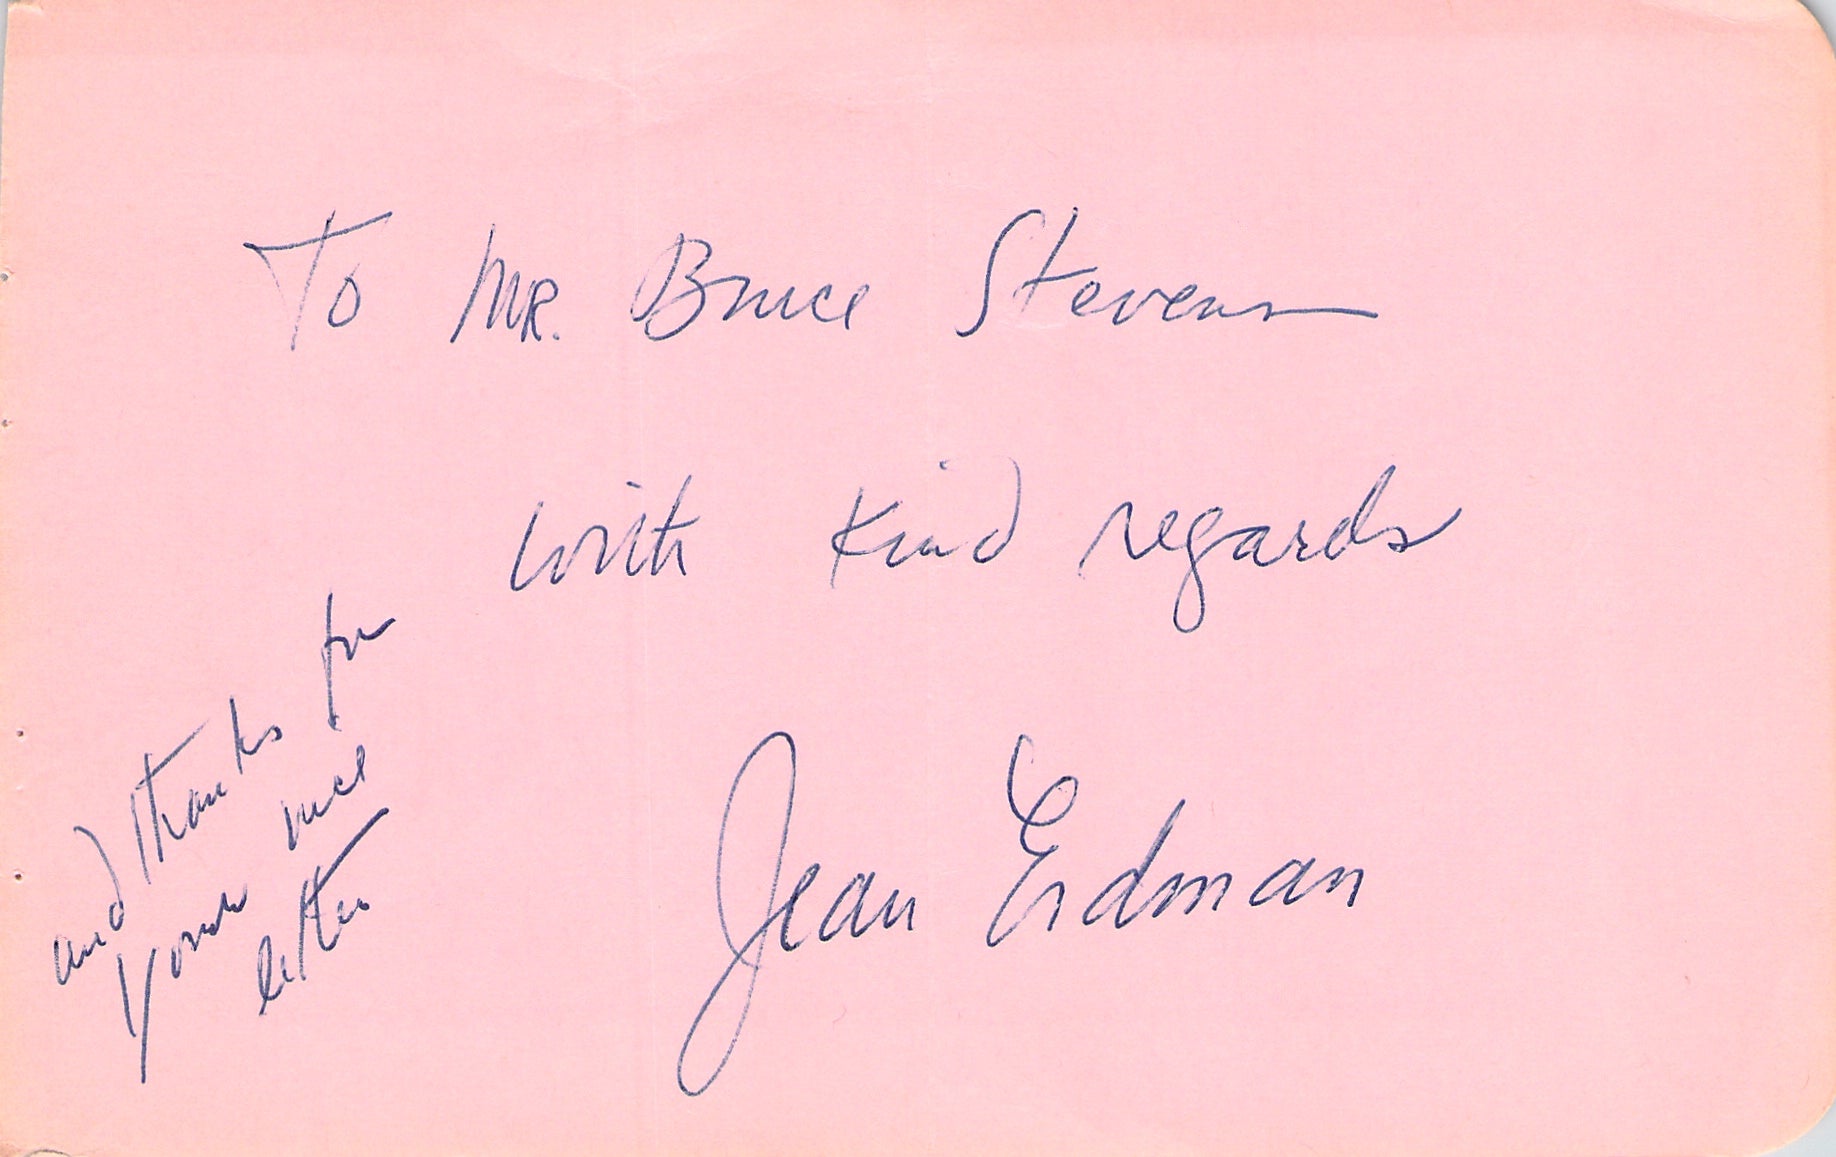 To MR. Bruce Stevens
with kind regards
and thanks for
your nice
letter
Jean Erdman